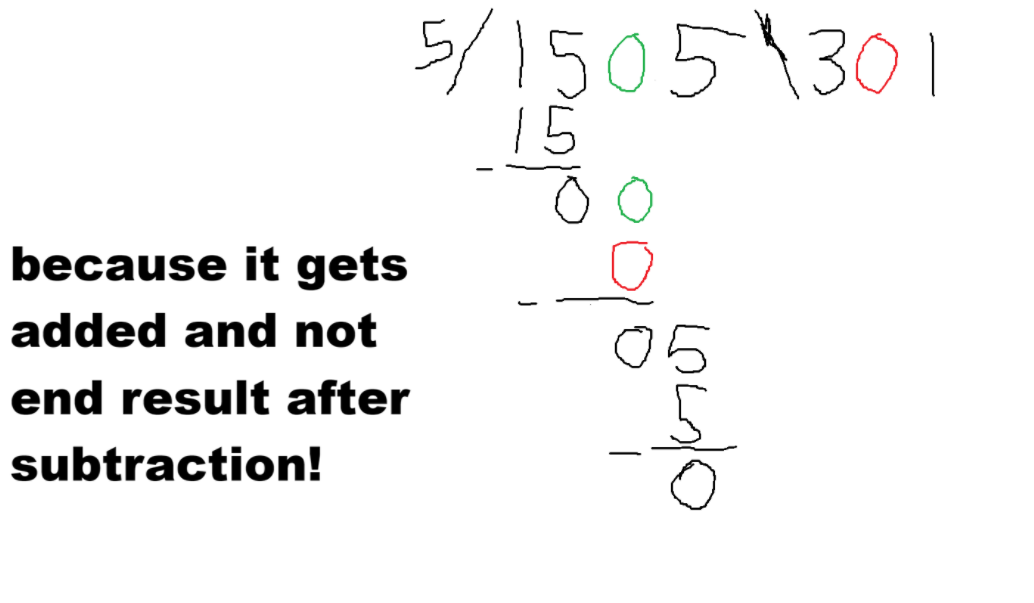 5/1505\301
15
-
00
0
-
05
5
-
0
because it gets
added and not
end result after
subtraction!